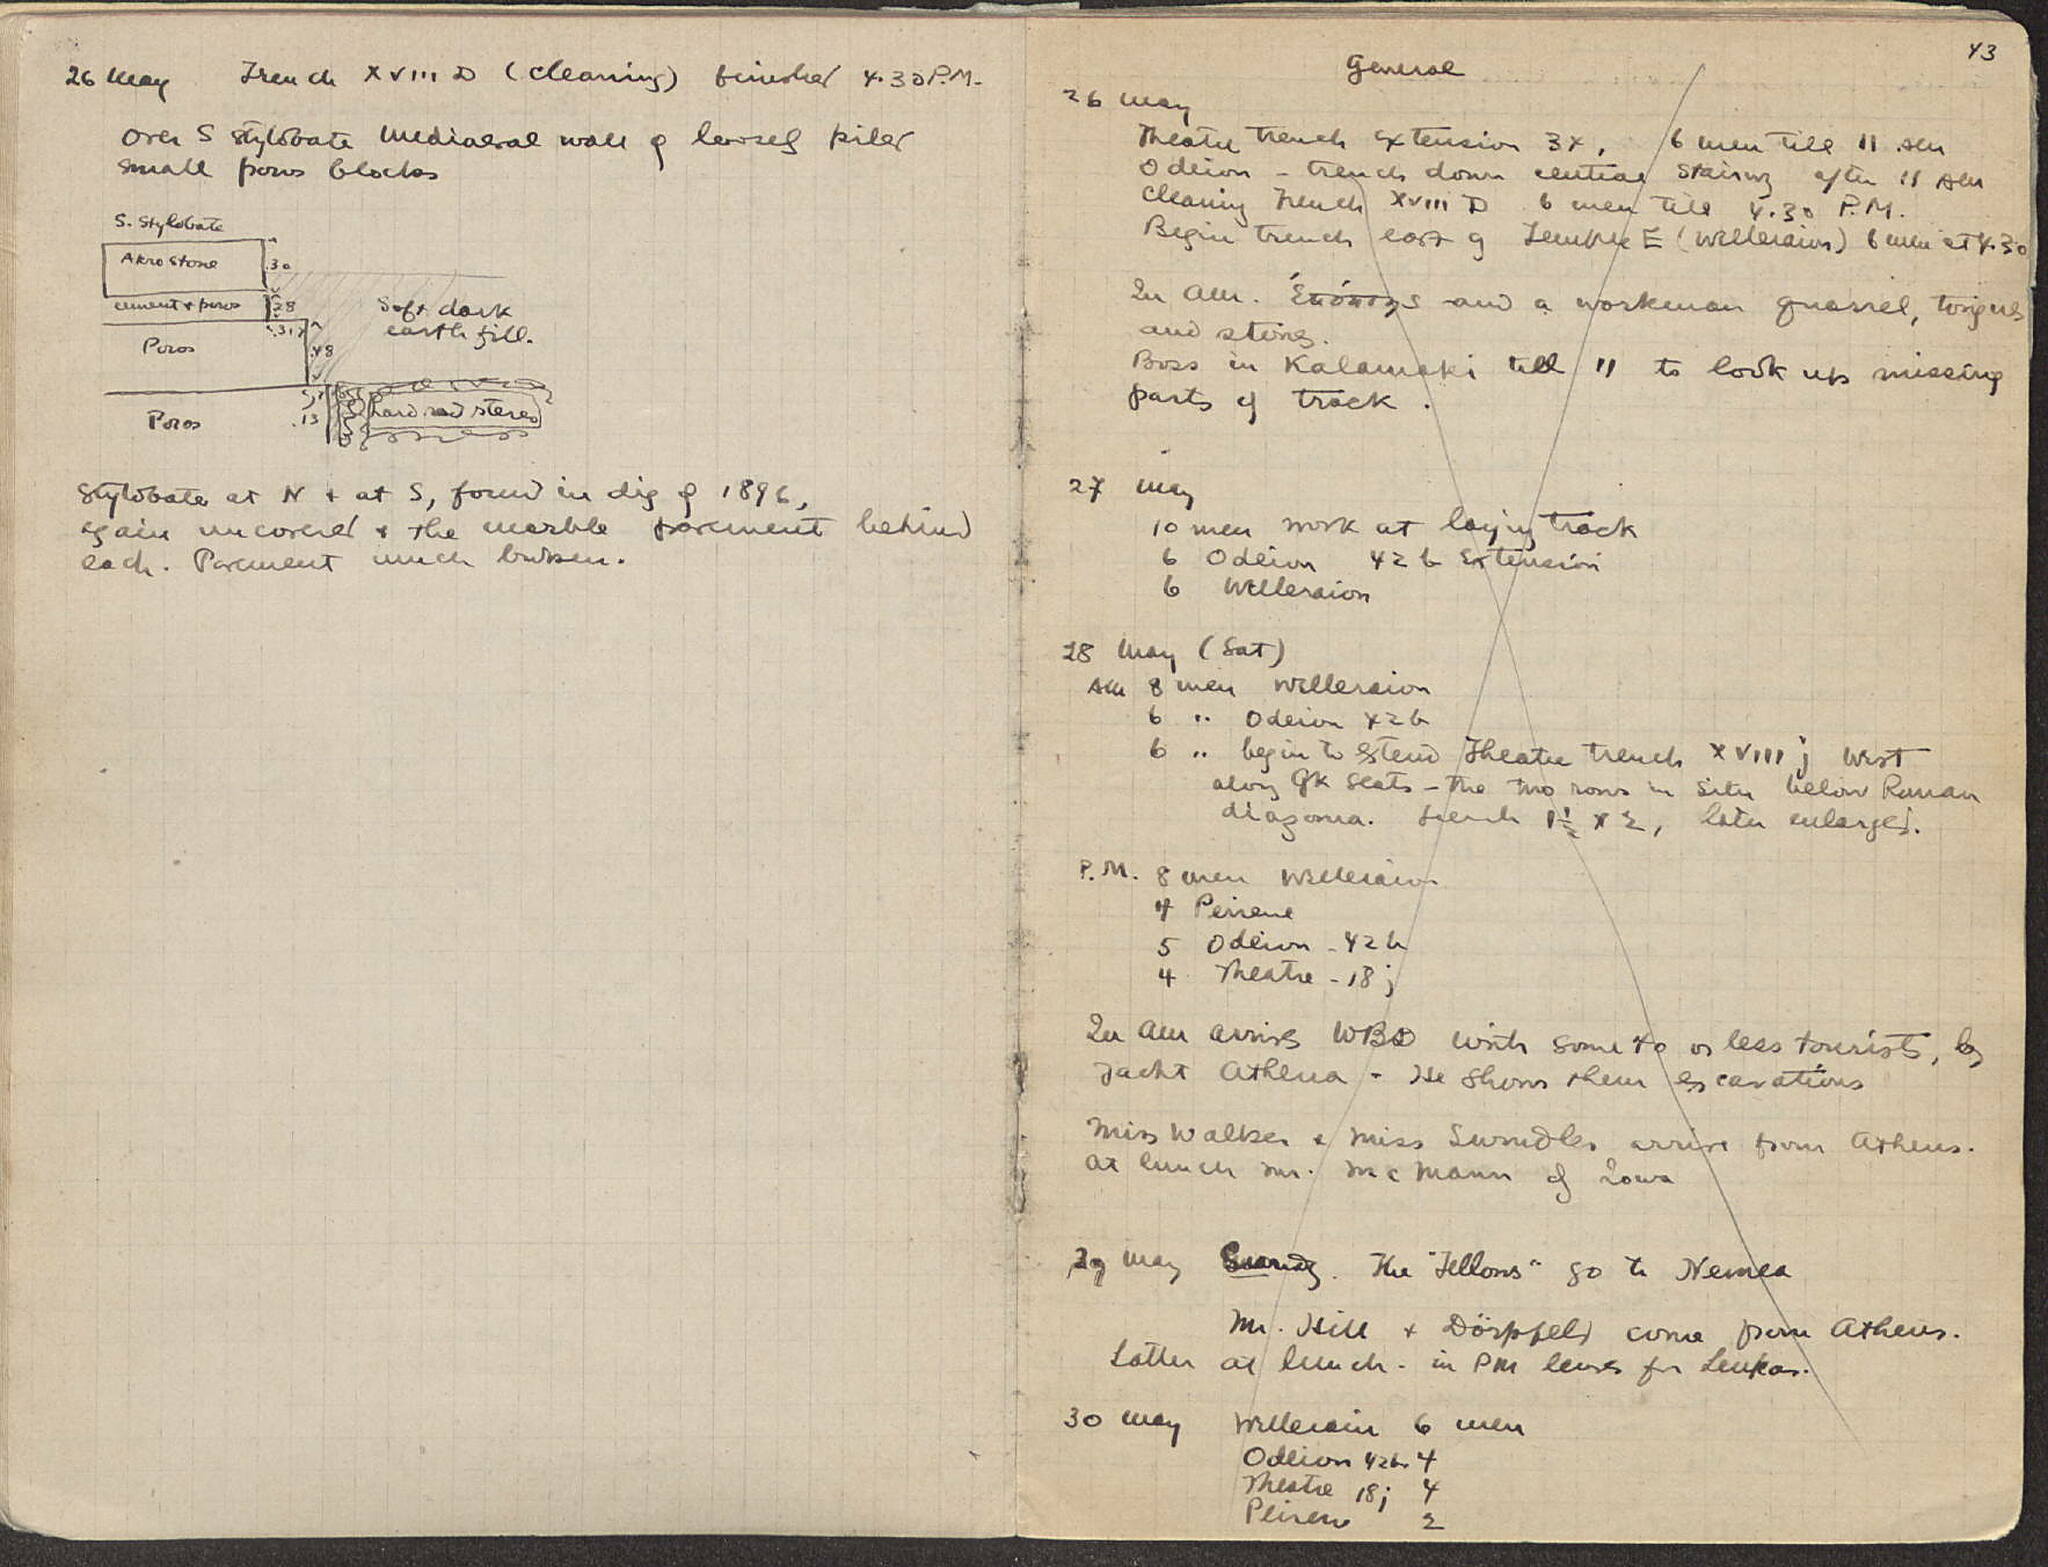 26 May Trench XVIII D (cleaning) finished 4.30 P.M.
Over S Stylobate Mediaeval wall of loosely piled
small poros blocks
S. Stylobate
Akro stone .30
cement + poros .28
.31
Soft dark
earth fill.
Poros .48
hard red stereo
Poros .13
Stylobate at N + at S, found in dig of 1896,
again uncovered + the marble pavement behind
each. Pavement much broken.
43
General
26 May
Theatre trench extension 3x, 6 men till 11 AM
Odeion - trench down central stairway after 11 AM
Cleaning Trench XVIII D 6 men till 4.30 P.M.
Begin trench east of Temple E (Willeraion) 6 men at 4.30
In AM. and a workman quarrel, tongues
and stones.
Boss in Kalamaki till 11 to look up missing
parts of track.
27 May
10 men work at laying track
6 Odeion 42 b Extension
6 Willeraion
28 May (Sat)
AM 8 men Willeraion
6 " Odeion 42b
6 " begin to extend Theatre trench XVIII j West
along Gk seats - the two rows in situ below Roman
diazoma. Trench 1½ x 2, later enlarged.
P.M. 8 men Willeraion
4 Peirene
5 Odeion - 42 b
4 Theatre - 18 j
In AM arrives WBD with some 40 or less tourists, by
Yacht Athena - He shows them excavations
Miss Walker & Miss Swindler arrive from Athens.
At lunch Mr. McMann of Iowa
29 May Sunday. The "Fellows" go to Nemea
Mr. Hill + Dörpfeld come from Athens.
Latter at lunch - in PM leaves for Leukas.
30 May Willeraion 6 men
Odeion 42b. 4
Theatre 18 j 4
Peirene 2